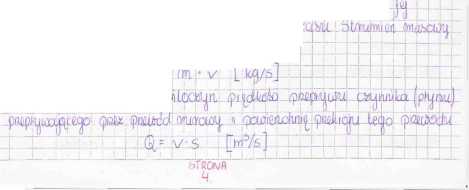 Strumień masowy
m · v [kg/s]
iloczyn prędkości przepływu czynnika (płynu)
przepływającego przez przewód rurowy i powierzchnię przekroju tego przewodu
Q = v · s [m³/s]
STRONA
4